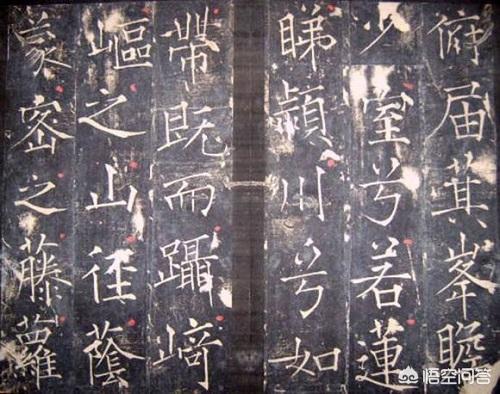 俯届萁峯瞻
少室兮若蓮
睇潁川兮如
帶既而躡崎
嶇之山徑蔭
蒙密之藤蘿
悟空问答